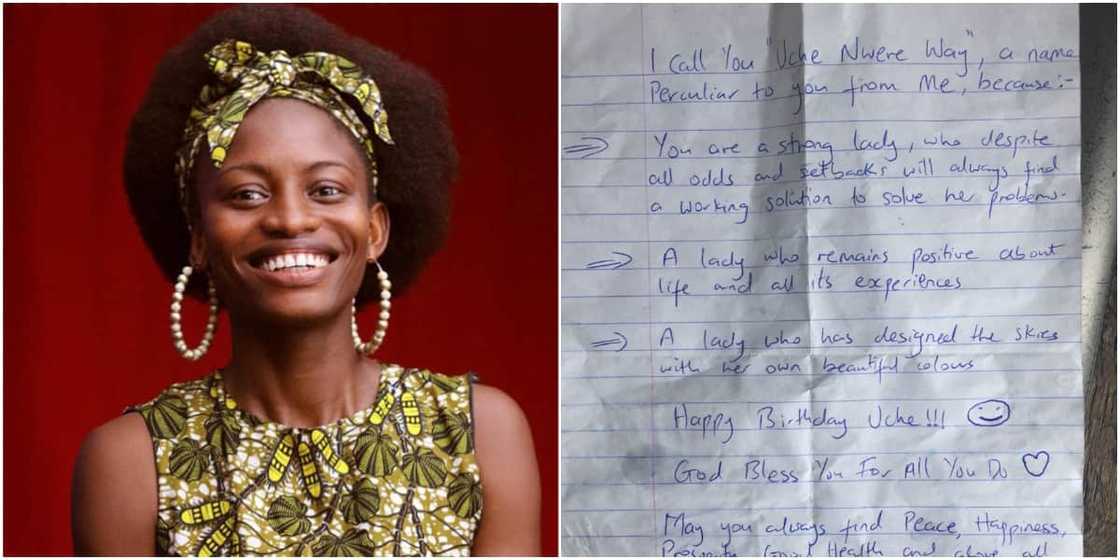 I Call You "Uche Nwere Way", a name
Perculiar to you from Me, because:-
You are a strong lady, who despite
all odds and setbacks will always find
a working solution to solve her problems.
A lady who remains positive about
life and all its experiences
A lady who has designed the skies
with her own beautiful colours
Happy Birthday Uche!!!
God Bless You For All You Do
May you always find Peace, Happiness,
Prosperity, Good Health and above all